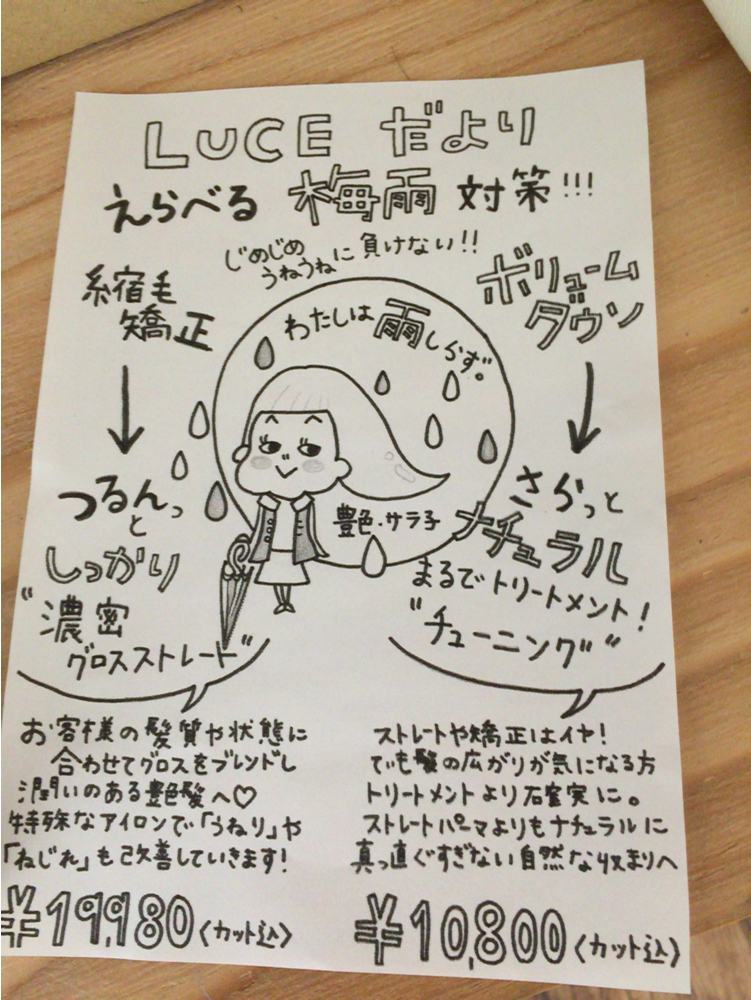 LUCE だより
えらべる 梅雨 対策!!!
じめじめ
うねうねに負けない!!
縮毛
矯正
ボリューム
ダウン
わたしは雨しらず。
艶・サラ子
つるんっ
と
しっかり
"濃密
グロスストレート"
さらっと
ナチュラル
まるでトリートメント!
"チューニング"
お客様の髪質や状態に
合わせてグロスをブレンドし
潤いのある艶髪へ♡
特殊なアイロンで「うねり」や
「ねじれ」も改善していきます!
¥19,980〈カット込〉
ストレートや矯正はイヤ!
でも髪の広がりが気になる方
トリートメントより確実に。
ストレートパーマよりもナチュラルに
真っ直ぐすぎない自然な収まりへ
¥10,800〈カット込〉